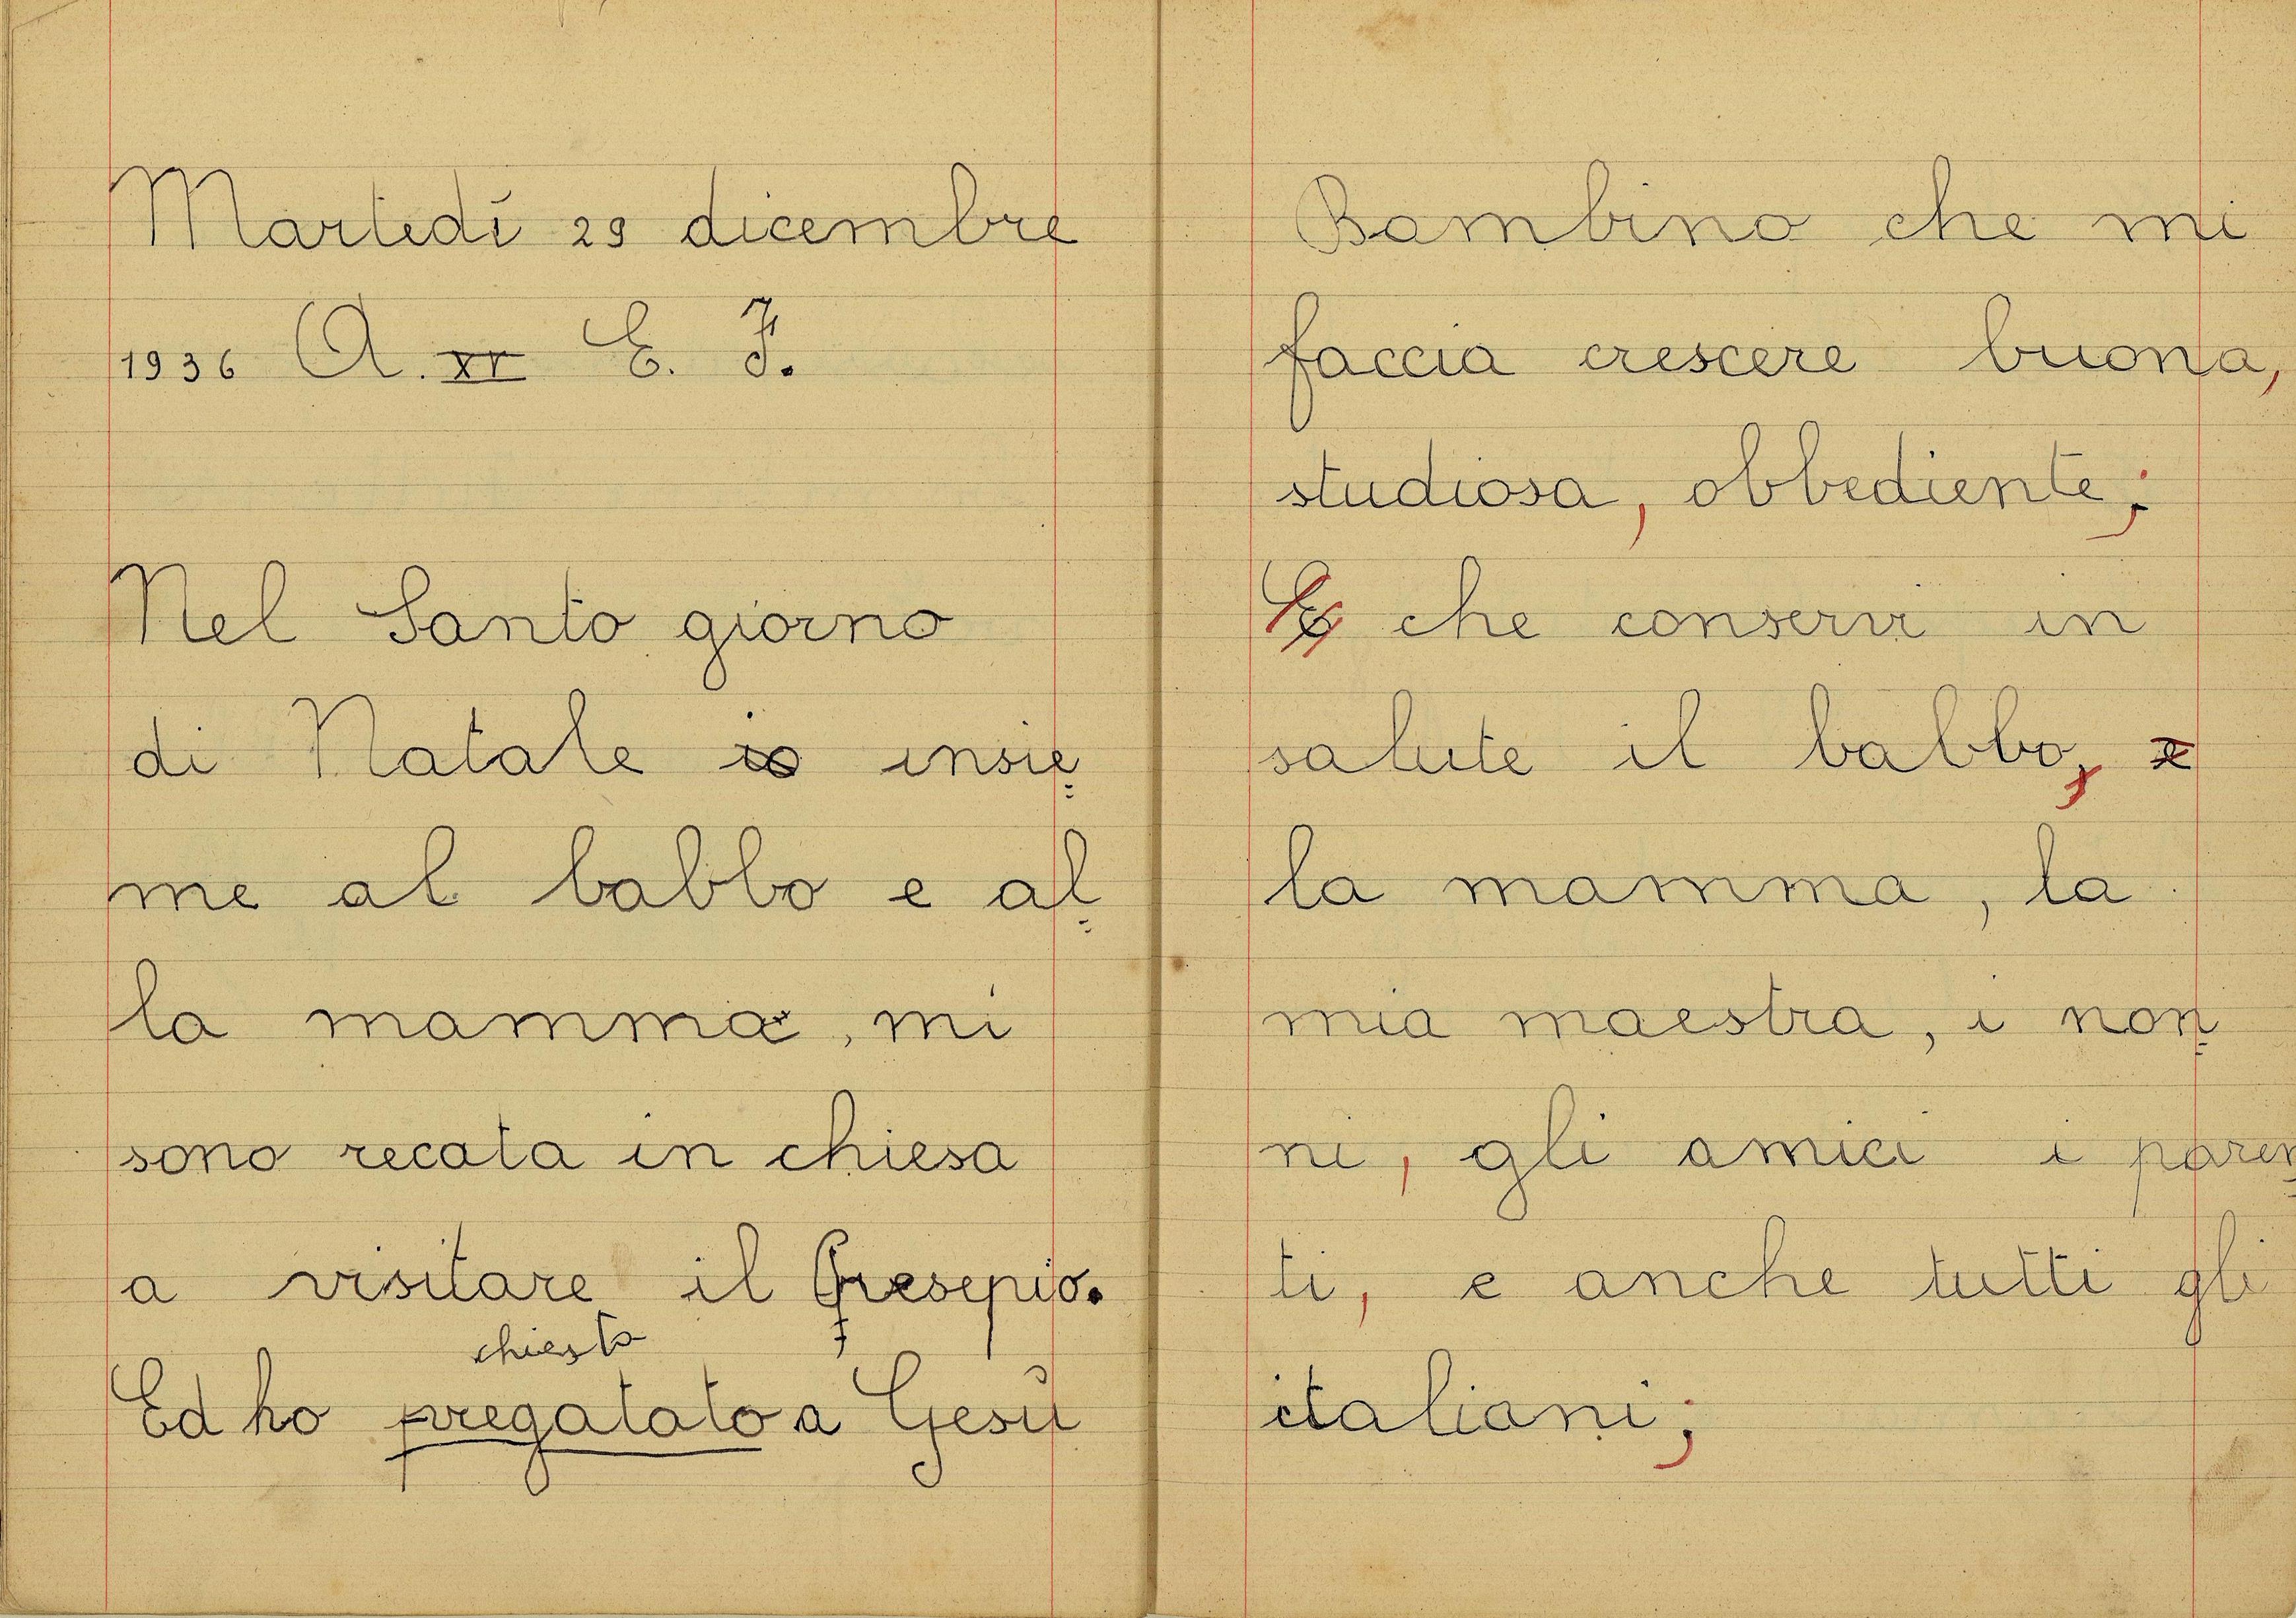 Martedì 29 dicembre
1936 A. XV E. F.
Nel Santo giorno
di Natale io insie
me al babbo e al
la mamma, mi
sono recata in chiesa
a visitare il Presepio.
chiesto
Ed ho pregatato a Gesù
Bambino che mi
faccia crescere buona,
studiosa, obbediente;
E che conservi in
salute il babbo, e
la mamma, la
mia maestra, i non
ni, gli amici i paren
ti, e anche tutti gli
italiani;